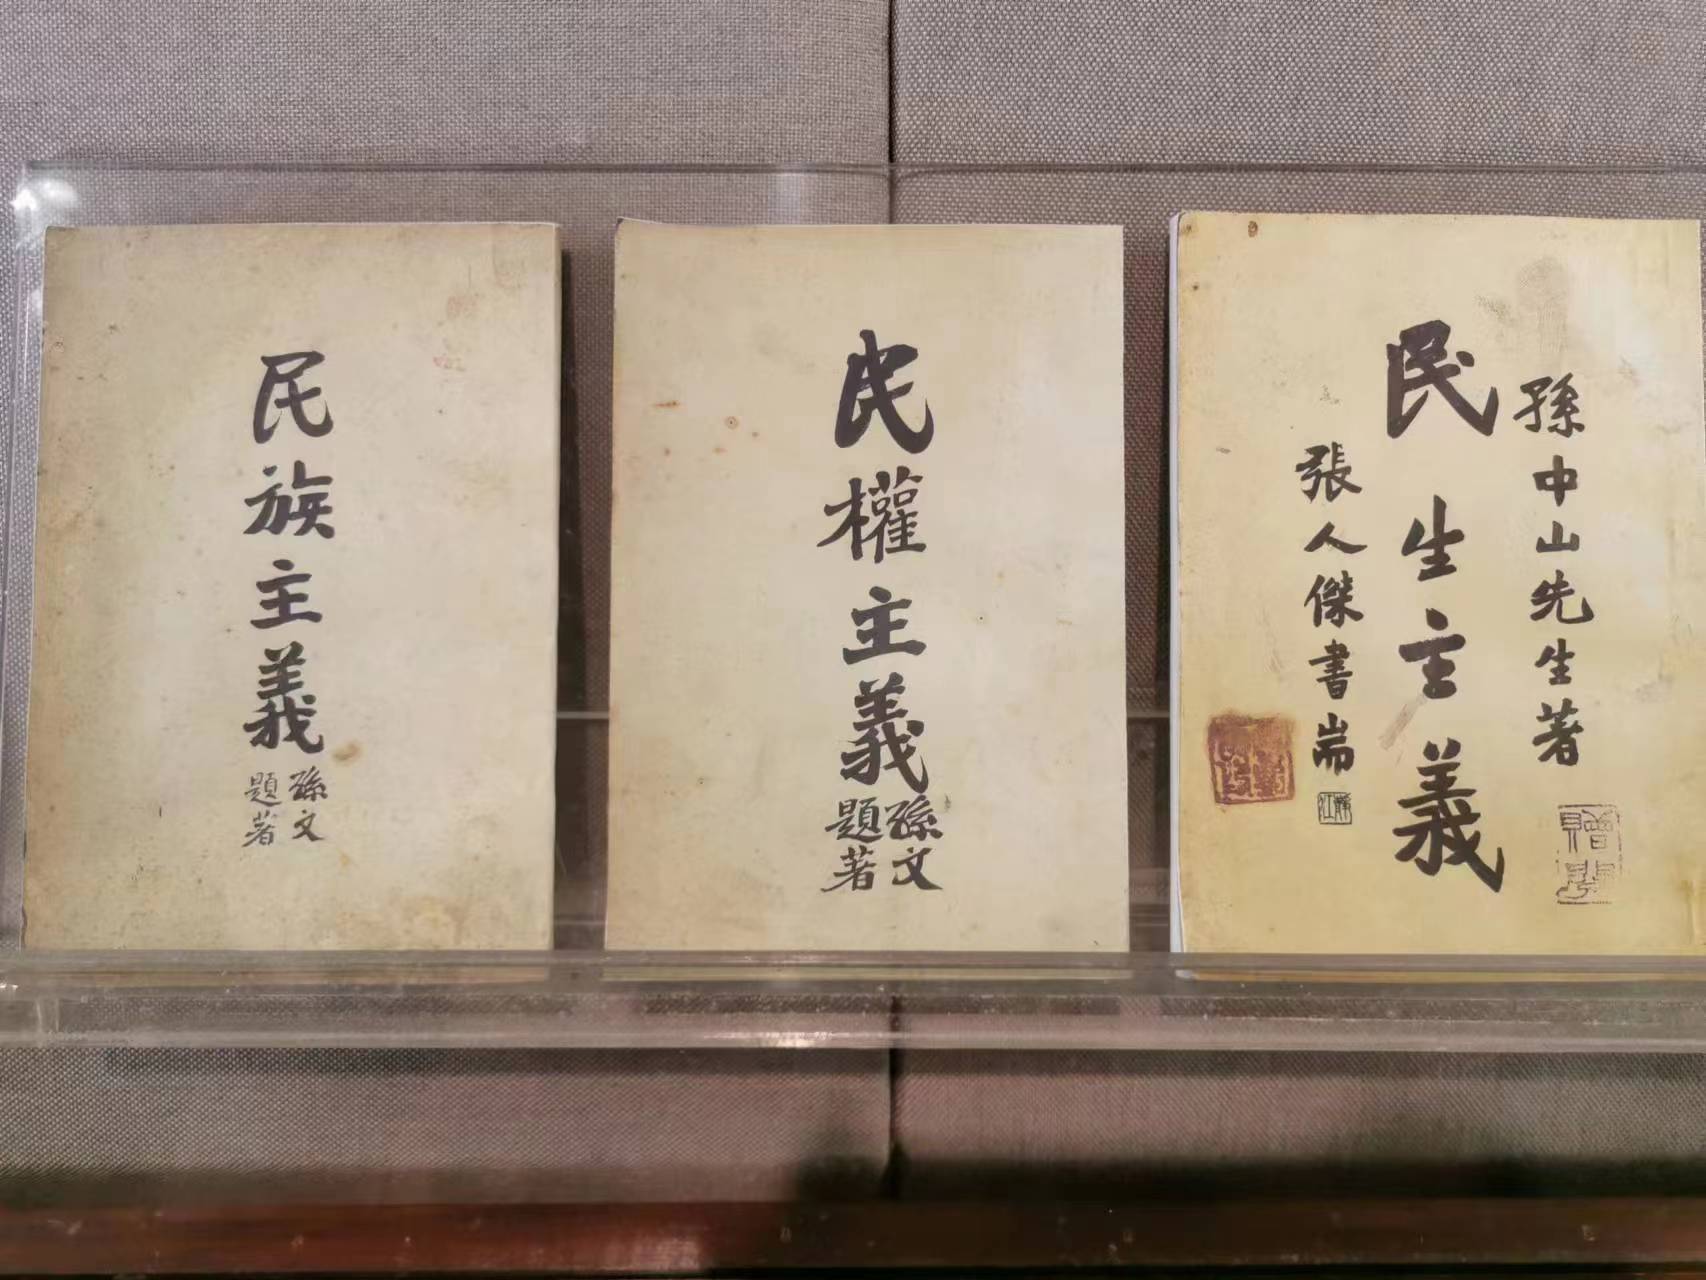 民族主義
孫文
題著
民權主義
孫文
題著
孫中山先生著
民生主義
張人傑書耑
靜江
贈閱